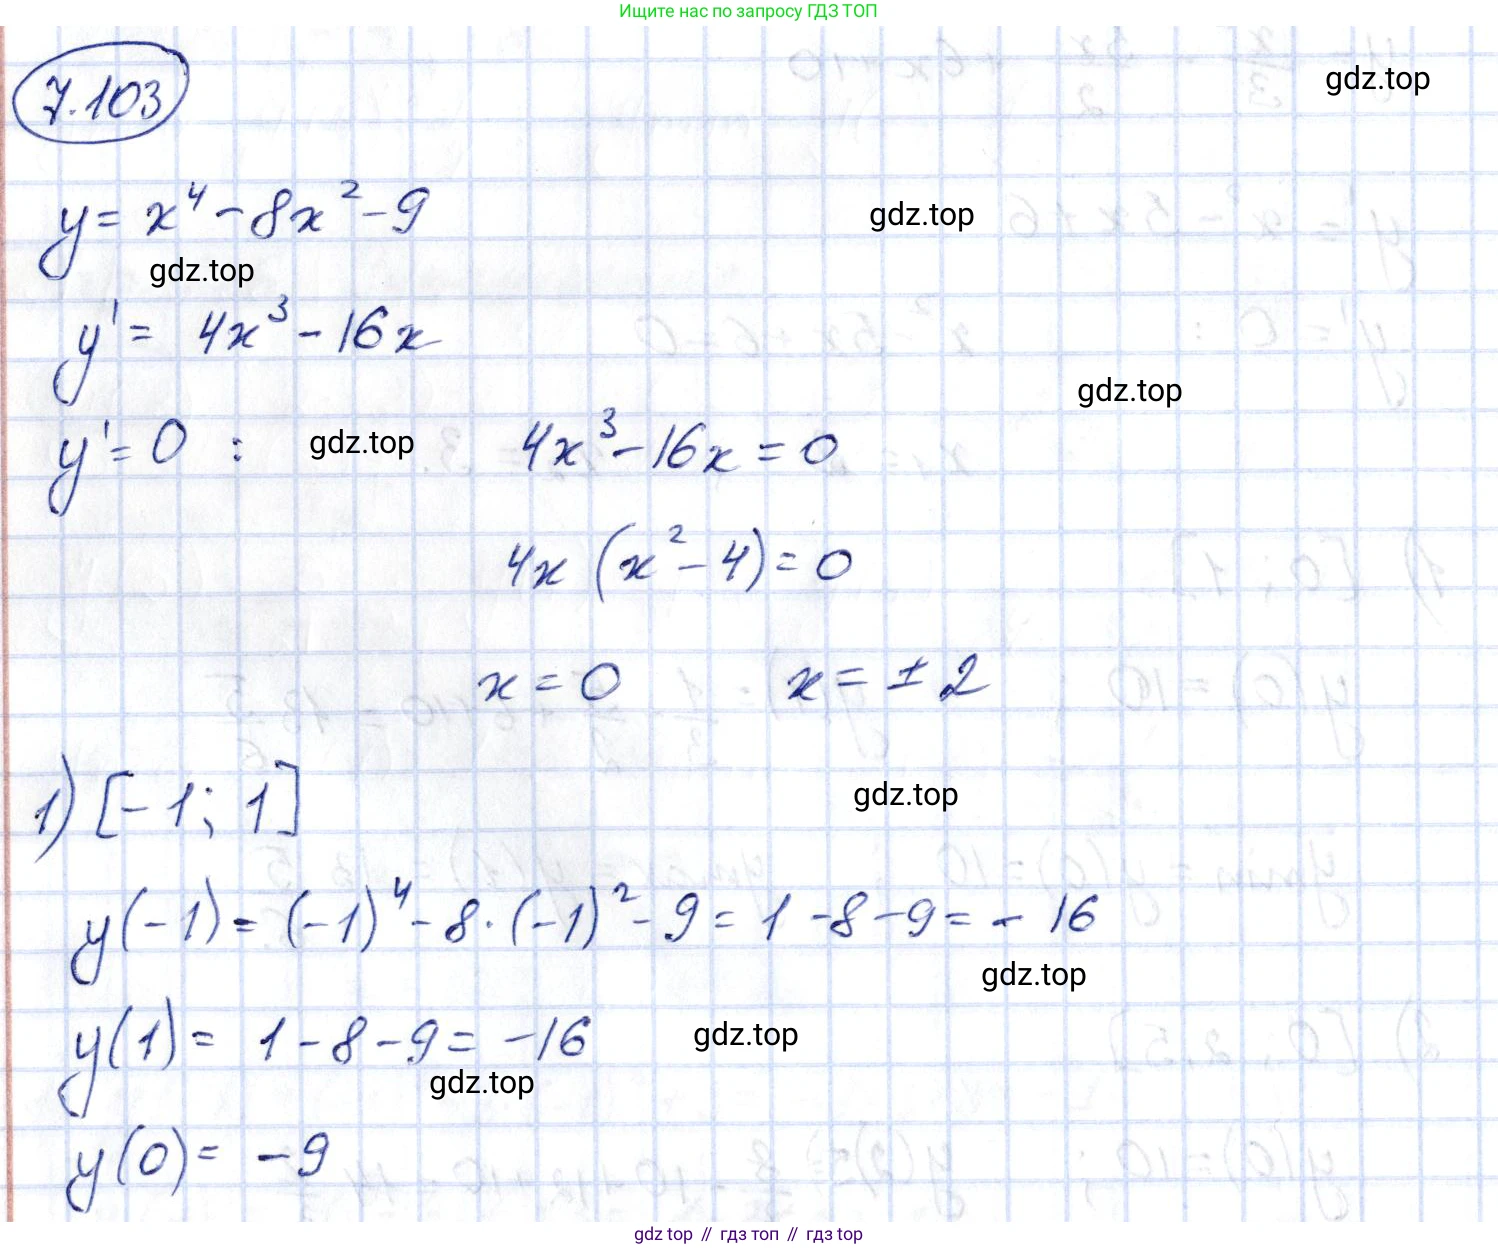 Ищите нас по запросу ГДЗ ТОП
7.103
gdz.top
y = x⁴ - 8x² - 9
gdz.top
gdz.top
y' = 4x³ - 16x
gdz.top
y' = 0 : gdz.top 4x³ - 16x = 0
4x (x² - 4) = 0
x = 0 x = ± 2
1) [-1; 1]
gdz.top
y(-1) = (-1)⁴ - 8·(-1)² - 9 = 1 - 8 - 9 = - 16
gdz.top
y(1) = 1 - 8 - 9 = -16
gdz.top
gdz.top
y(0) = -9
gdz top // гдз топ // гдз top